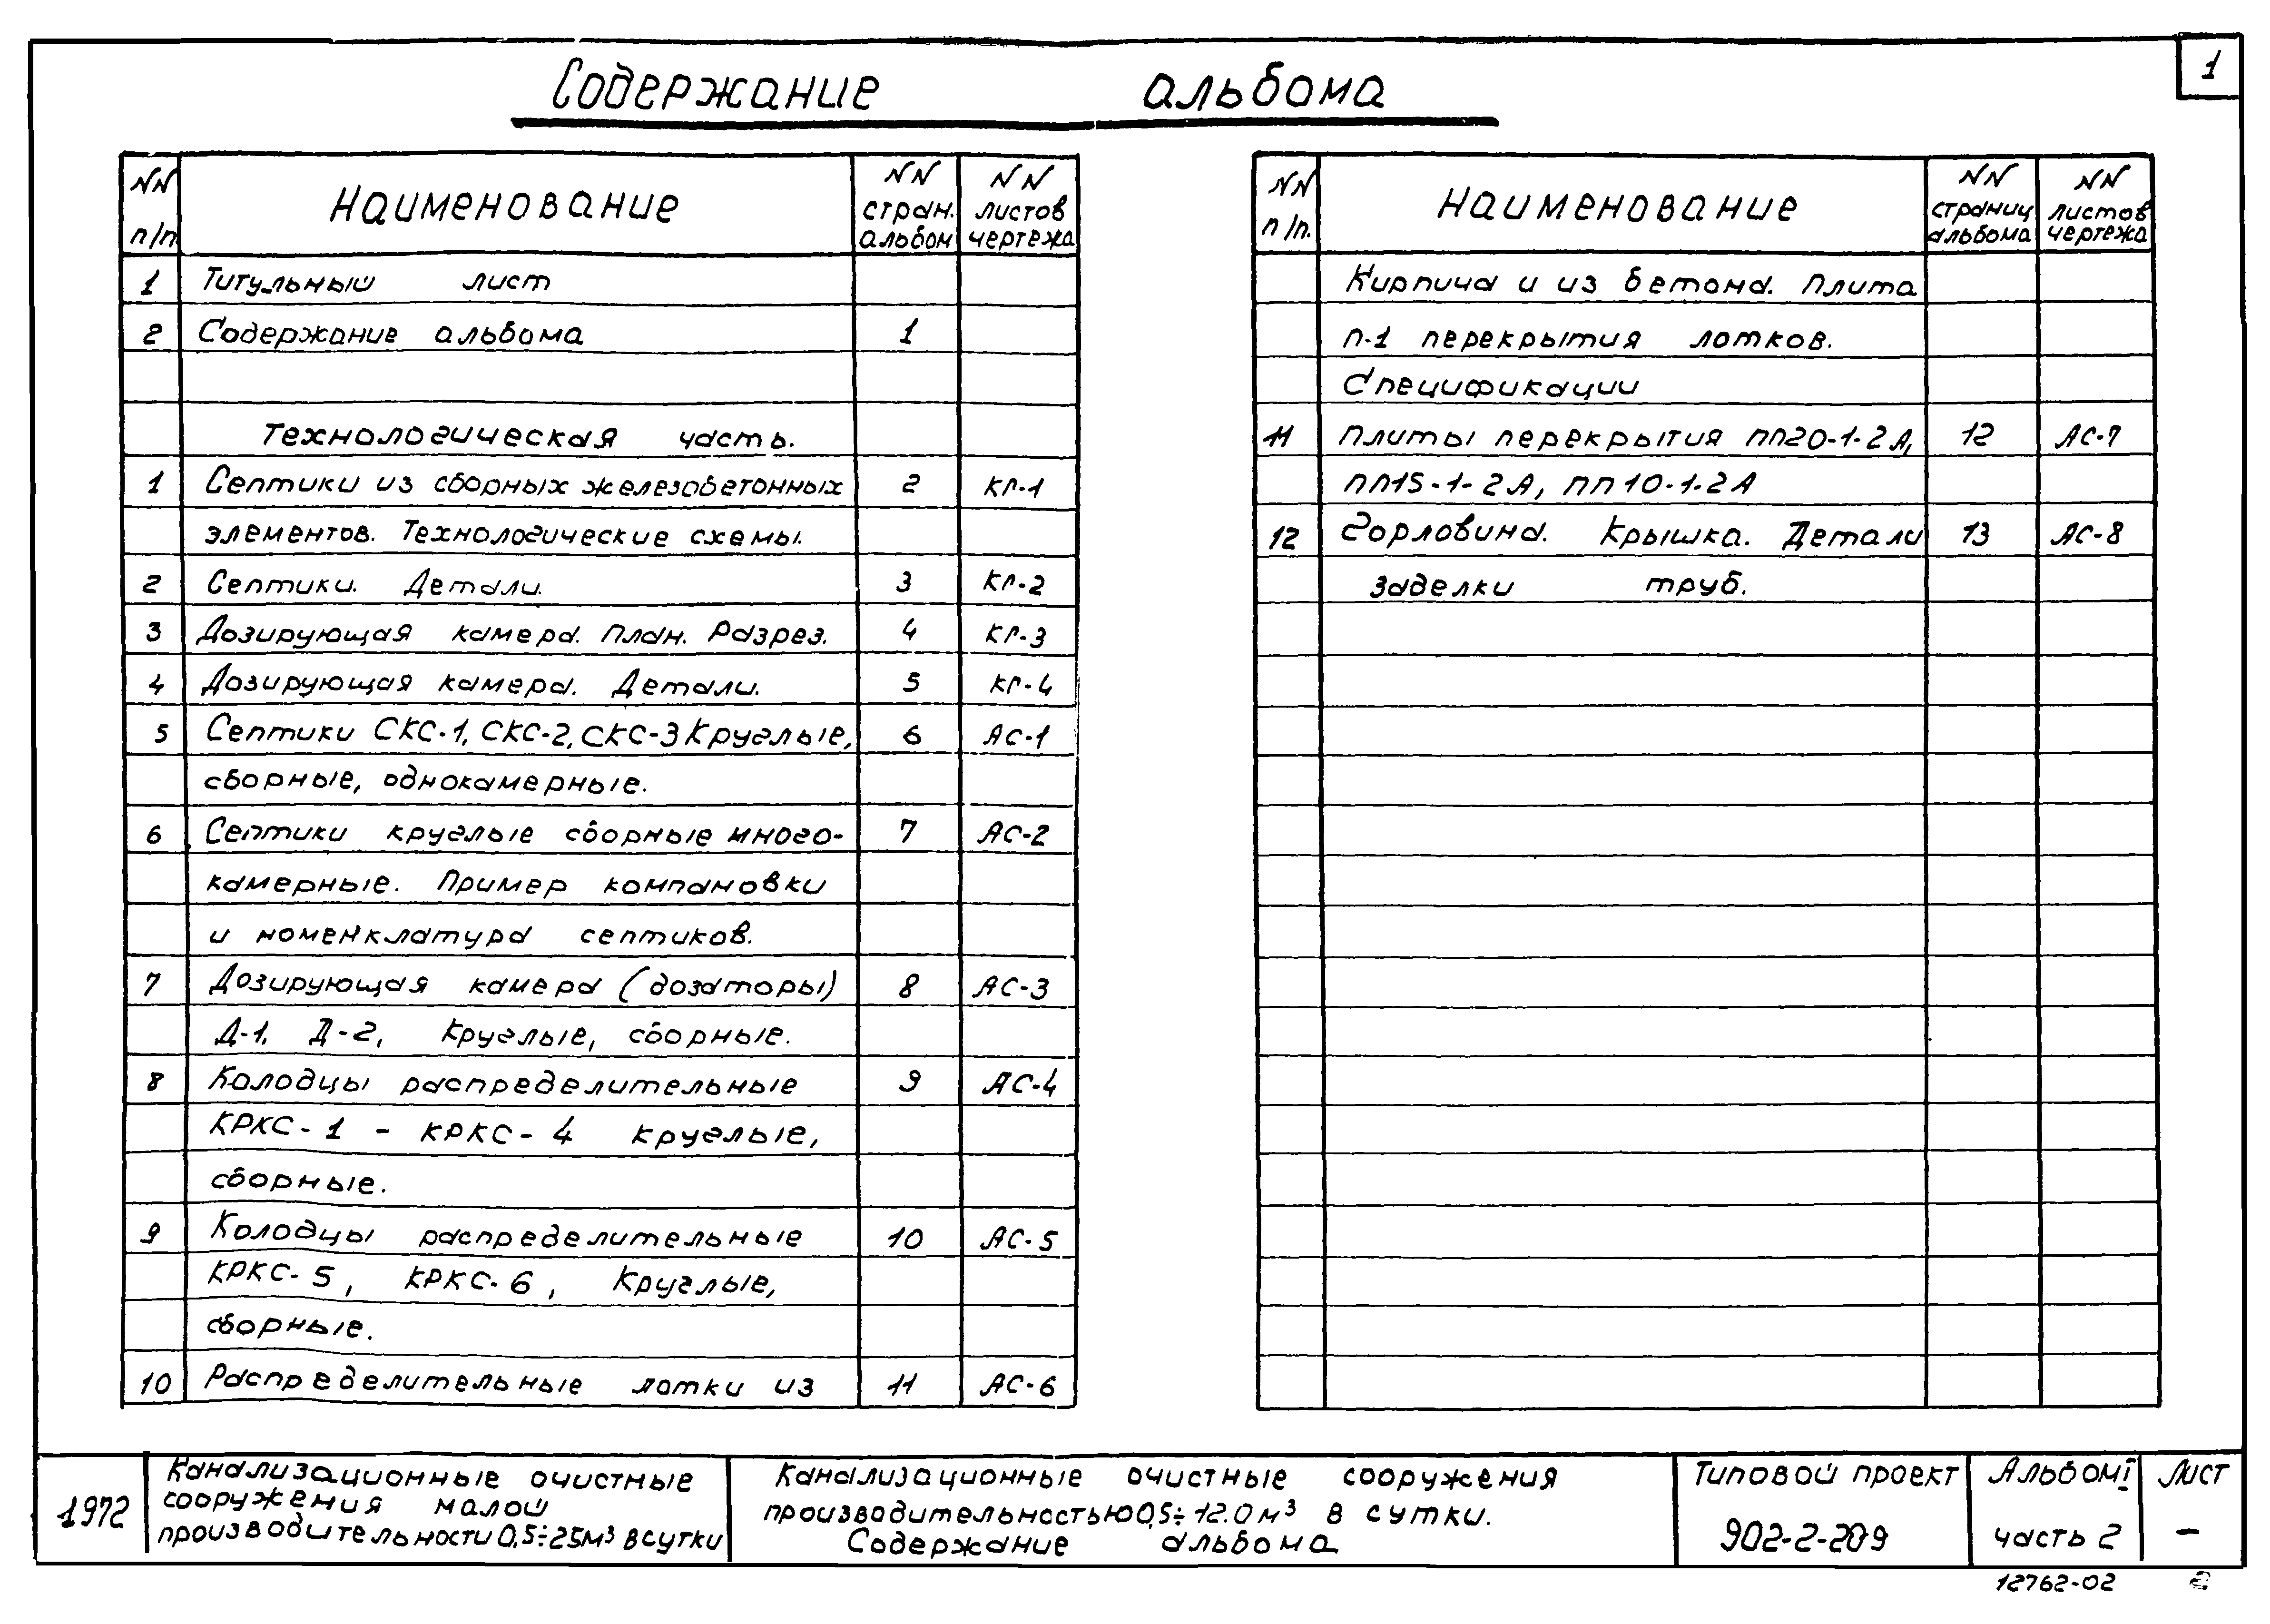 1
Содержание альбома
NN п/п Наименование NN стран. альбом NN листов чертежа
1 Титульный лист
2 Содержание альбома 1
Технологическая часть.
1 Септики из сборных железобетонных 2 КГ-1
элементов. Технологические схемы.
2 Септики. Детали. 3 КГ-2
3 Дозирующая камера. План. Разрез. 4 КГ-3
4 Дозирующая камера. Детали. 5 КГ-4
5 Септики СКС-1, СКС-2, СКС-3 Круглые, 6 АС-1
сборные, однокамерные.
6 Септики круглые сборные много- 7 АС-2
камерные. Пример компановки
и номенклатура септиков.
7 Дозирующая камера (дозаторы) 8 АС-3
Д-1, Д-2, круглые, сборные.
8 Колодцы распределительные 9 АС-4
КРКС-1 - КРКС-4 круглые,
сборные.
9 Колодцы распределительные 10 АС-5
КРКС-5, КРКС-6, Круглые,
сборные.
10 Распределительные лотки из 11 АС-6
NN п/п. Наименование NN страниц альбома NN листов чертежа
Кирпича и из бетона. Плита
п-1 перекрытия лотков.
Спецификации
11 Плиты перекрытия ПП20-1-2А, 12 АС-7
ПП15-1-2А, ПП10-1-2А
12 Горловина. Крышка. Детали 13 АС-8
заделки труб.
1972
Канализационные очистные
сооружения малой
производительности 0,5÷25м³ в сутки
Канализационные очистные сооружения
производительностью 0,5÷12.0 м³ в сутки.
Содержание альбома
Типовой проект
902-2-209
Альбом I
часть 2
Лист
—
12762-02 2